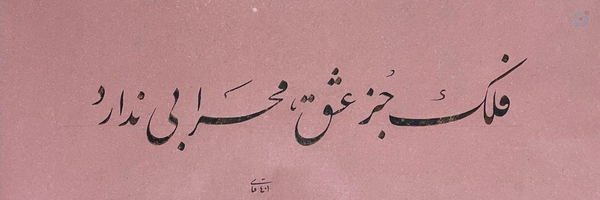 فلک جُز عشق محرابی ندارد